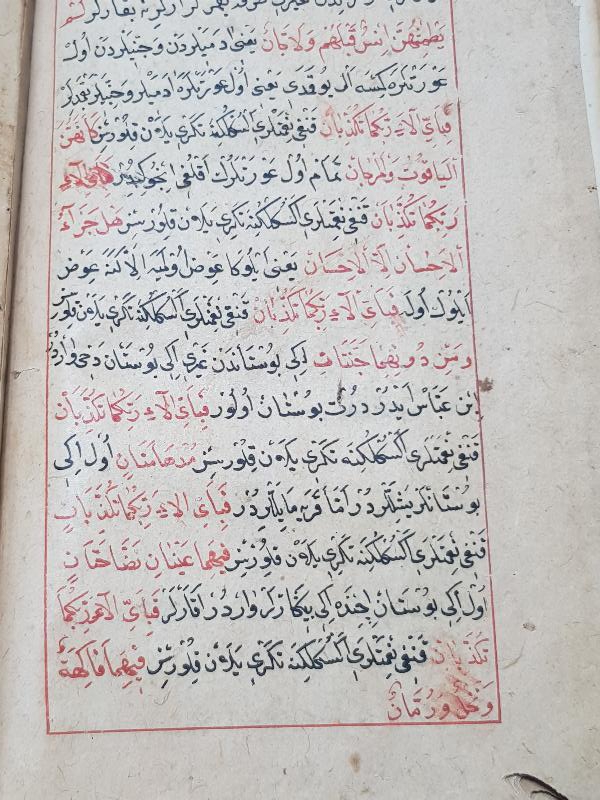 يَطْمِثْهُنَّ اِنْسٌ قَبْلَهُمْ وَلَا جَانٌّ يعنى دميلردن وجنيلردن اول
عورتلره كمسه ال يوقدى يعنى اول عورتلره ادميلر وجنيلر
فَبِاَىِّ الَاءِ رَبِّكُمَا تُكَذِّبَانِ قنغى نعمتلرى اكسكلكنه تكرى يلان قلورسز كَاَنَّهُنَّ
الْيَاقُوتُ وَالْمَرْجَانُ تمام اول عورتلرك اقلغى فَبِاَىِّ الَاءِ
رَبِّكُمَا تُكَذِّبَانِ قنغى نعمتلرى اكسكلكنه تكرى يلان قلورسز هَلْ جَزَاءُ
الْاِحْسَانِ اِلَّا الْاِحْسَانُ يعنى ايلوكا عوض اولمه الا كنه عوض
ايلوك اوله فَبِاَىِّ الَاءِ رَبِّكُمَا تُكَذِّبَانِ قنغى نعمتلرى اكسكلكنه تكرى يلان قلورسز
وَمِنْ دُونِهِمَا جَنَّتَانِ ايكى بوستاندن غيرى ايكى بوستان دخى واردر
ابن عباس ايدر درت بوستان اولور فَبِاَىِّ الَاءِ رَبِّكُمَا تُكَذِّبَانِ
قنغى نعمتلرى اكسكلكنه تكرى يلان قلورسز مُدْهَامَّتَانِ اول ايكى
بوستانلر يشللردر اما قريه مايللردر فَبِاَىِّ الَاءِ رَبِّكُمَا تُكَذِّبَانِ
قنغى نعمتلرى اكسكلكنه تكرى يلان قلورسز فِيهِمَا عَيْنَانِ نَضَّاخَتَانِ
اول ايكى بوستان اچنده ايكى بيكارلر واردر اقارلر فَبِاَىِّ الَاءِ رَبِّكُمَا
تُكَذِّبَانِ قنغى نعمتلرى اكسكلكنه تكرى يلان قلورسز فِيهِمَا فَاكِهَةٌ
وَنَخْلٌ وَرُمَّانٌ